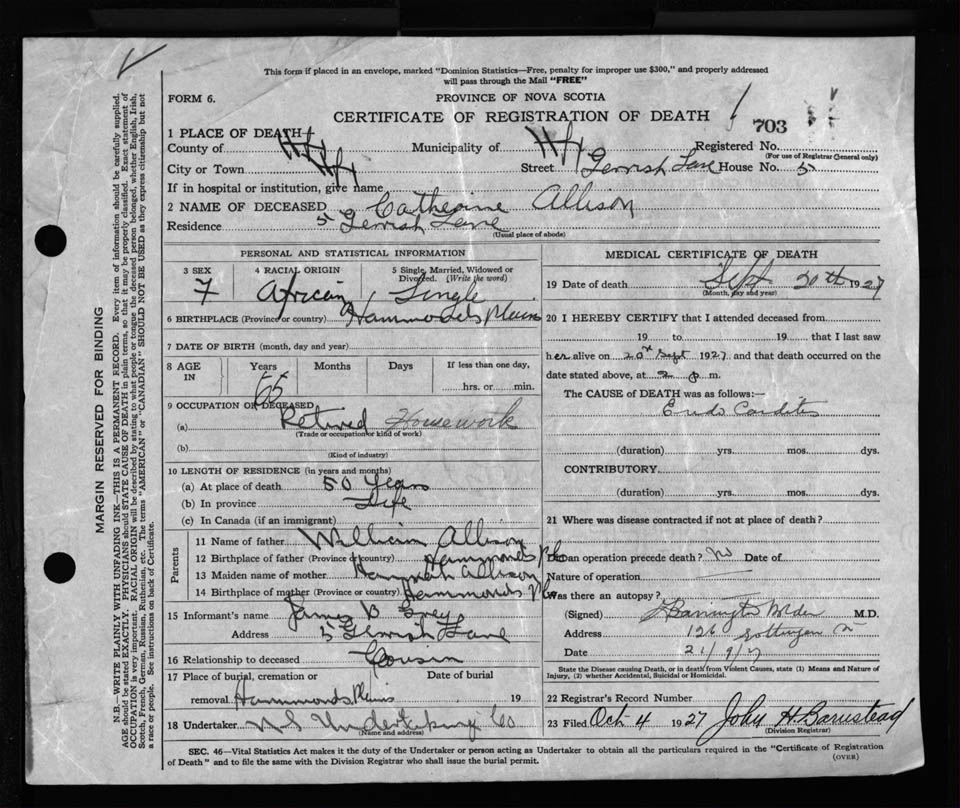 This form if placed in an envelope, marked "Dominion Statistics—Free, penalty for improper use $300," and properly addressed
will pass through the Mail "FREE"
FORM 6.
PROVINCE OF NOVA SCOTIA
CERTIFICATE OF REGISTRATION OF DEATH
703
1 PLACE OF DEATH
County of Hfx Municipality of Hfx Registered No.
(For use of Registrar General only)
City or Town Hfx Street Gerrish Lane House No. 5
If in hospital or institution, give name
2 NAME OF DECEASED Catherine Allison
Residence 5 Gerrish Lane
(Usual place of abode)
PERSONAL AND STATISTICAL INFORMATION
3 SEX
F
4 RACIAL ORIGIN
African
5 Single, Married, Widowed or Divorced. (Write the word)
Single
6 BIRTHPLACE (Province or country) Hammonds Plains
7 DATE OF BIRTH (month, day and year)
8 AGE IN
Years
65
Months
Days
If less than one day,
hrs. or min.
9 OCCUPATION OF DECEASED
(a) Retired Housework
(Trade or occupation or kind of work)
(b)
(Kind of industry)
10 LENGTH OF RESIDENCE (in years and months)
(a) At place of death 50 Years
(b) In province Life
(c) In Canada (if an immigrant)
Parents
11 Name of father William Allison
12 Birthplace of father (Province or country) Hammonds Pls
13 Maiden name of mother Hannah Allison
14 Birthplace of mother (Province or country) Hammonds Pls
15 Informant's name James B Grey
Address 5 Gerrish Lane
16 Relationship to deceased Cousin
17 Place of burial, cremation or removal Hammonds Plains
Date of burial
19
18 Undertaker N S Undertaking Co
(Name and address)
MEDICAL CERTIFICATE OF DEATH
19 Date of death Sept 20th 1927
(Month, day and year)
20 I HEREBY CERTIFY that I attended deceased from
19 to 19 that I last saw
her alive on 20th Sept 1927 and that death occurred on the
date stated above, at 2 p m.
The CAUSE of DEATH was as follows:—
Endo Carditis
(duration) yrs. mos. dys.
CONTRIBUTORY
(duration) yrs. mos. dys.
21 Where was disease contracted if not at place of death?
Did an operation precede death? No Date of
Nature of operation
Was there an autopsy?
(Signed) M.D.
Address 126 Gottingen St
Date 21/9/27
State the Disease causing Death, or in death from Violent Causes, state (1) Means and Nature of
Injury, (2) whether Accidental, Suicidal or Homicidal.
22 Registrar's Record Number
23 Filed Oct 4 1927 John H Barnstead
(Division Registrar)
SEC. 46—Vital Statistics Act makes it the duty of the Undertaker or person acting as Undertaker to obtain all the particulars required in the "Certificate of Registration
of Death" and to file the same with the Division Registrar who shall issue the burial permit.
(OVER)
MARGIN RESERVED FOR BINDING
N.B.—WRITE PLAINLY WITH UNFADING INK—THIS IS A PERMANENT RECORD. Every item of information should be carefully supplied.
AGE should be stated EXACTLY. PHYSICIANS should STATE CAUSE OF DEATH in plain terms, so that it may be properly classified. Exact statement of
OCCUPATION is very important. RACIAL ORIGIN will be described by stating to what people or tongue the deceased person belonged, whether English, Irish,
Scotch, French, German, Russian, Ruthenian, etc. The terms "AMERICAN" or "CANADIAN" SHOULD NOT BE USED as they express citizenship but not
a race or people. See instructions on back of Certificate.